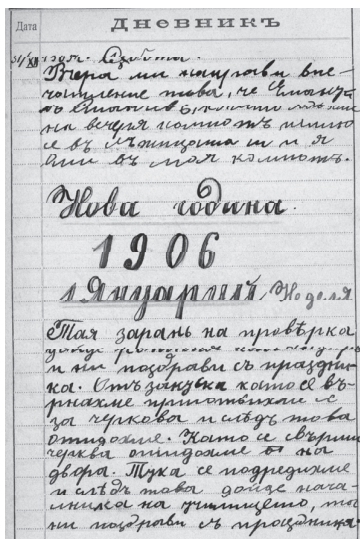 Дневникъ
Дата
31/XII Сѫбота.
Вчера ми направи впе-
чатление това, че
на вечеря компотъ
се въ и я
въ моя компотъ.
Нова година.
1906
1 Януарий, Неделя
Тая зарань на провѣрка
дойде
и ни поздрави съ праздни-
ка. Отъ като се въ-
рнахме приготвихме се
за черкова и слѣдъ това
отидохме. Като се свърши
черква отидохме на
двора. Тука се подредихме
и слѣдъ това дойде нача-
лника на училището, то
ни поздрави съ праздника